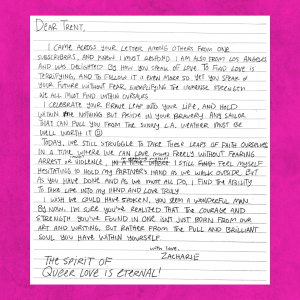 DEAR TRENT,
I CAME ACROSS YOUR LETTER AMONG OTHERS FROM ONE
SUBSCRIBERS, AND KNEW I MUST RESPOND. I AM ALSO FROM LOS ANGELES
AND WAS DELIGHTED BY HOW YOU SPEAK OF LOVE. TO FIND LOVE IS
TERRIFYING, AND TO FOLLOW IT EVEN MORE SO. YET YOU SPEAK OF
YOUR FUTURE WITHOUT FEAR, EXEMPLIFYING THE IMMENSE STRENGTH
WE ALL MUST FIND WITHIN OURSELVES.
I CELEBRATE YOUR BRAVE LEAP INTO YOUR LIFE, AND HOLD
WITHIN ME NOTHING BUT PRIDE IN YOUR BRAVERY. ANY SAILOR
THAT CAN PULL YOU FROM THE SUNNY L.A. WEATHER MUST BE
WELL WORTH IT ☺
TODAY, WE STILL STRUGGLE TO TAKE THESE LEAPS OF FAITH OURSELVES
IN A TIME WHERE WE CAN LOVE MORE FREELY WITHOUT FEARING
ARREST OR VIOLENCE, I STILL FIND MYSELF
HESITATING TO HOLD MY PARTNER'S HAND AS WE WALK OUTSIDE. BUT
AS YOU HAVE DONE AND AS WE MUST ALL DO, I FIND THE ABILITY
TO TAKE LIFE INTO MY HAND AND LOVE TRULY.
I WISH WE COULD HAVE SPOKEN, YOU SEEM A WONDERFUL MAN.
BY NOW, I'M SURE YOU'VE REALIZED THAT THE COURAGE AND
STRENGTH YOU'VE FOUND IN ONE ISN'T JUST BORN FROM OUR
ART AND WRITING, BUT RATHER FROM THE FULL AND BRILLIANT
SOUL YOU HAVE WITHIN YOURSELF.
with love,
ZACHARIE
THE SPIRIT OF
QUEER LOVE IS ETERNAL!